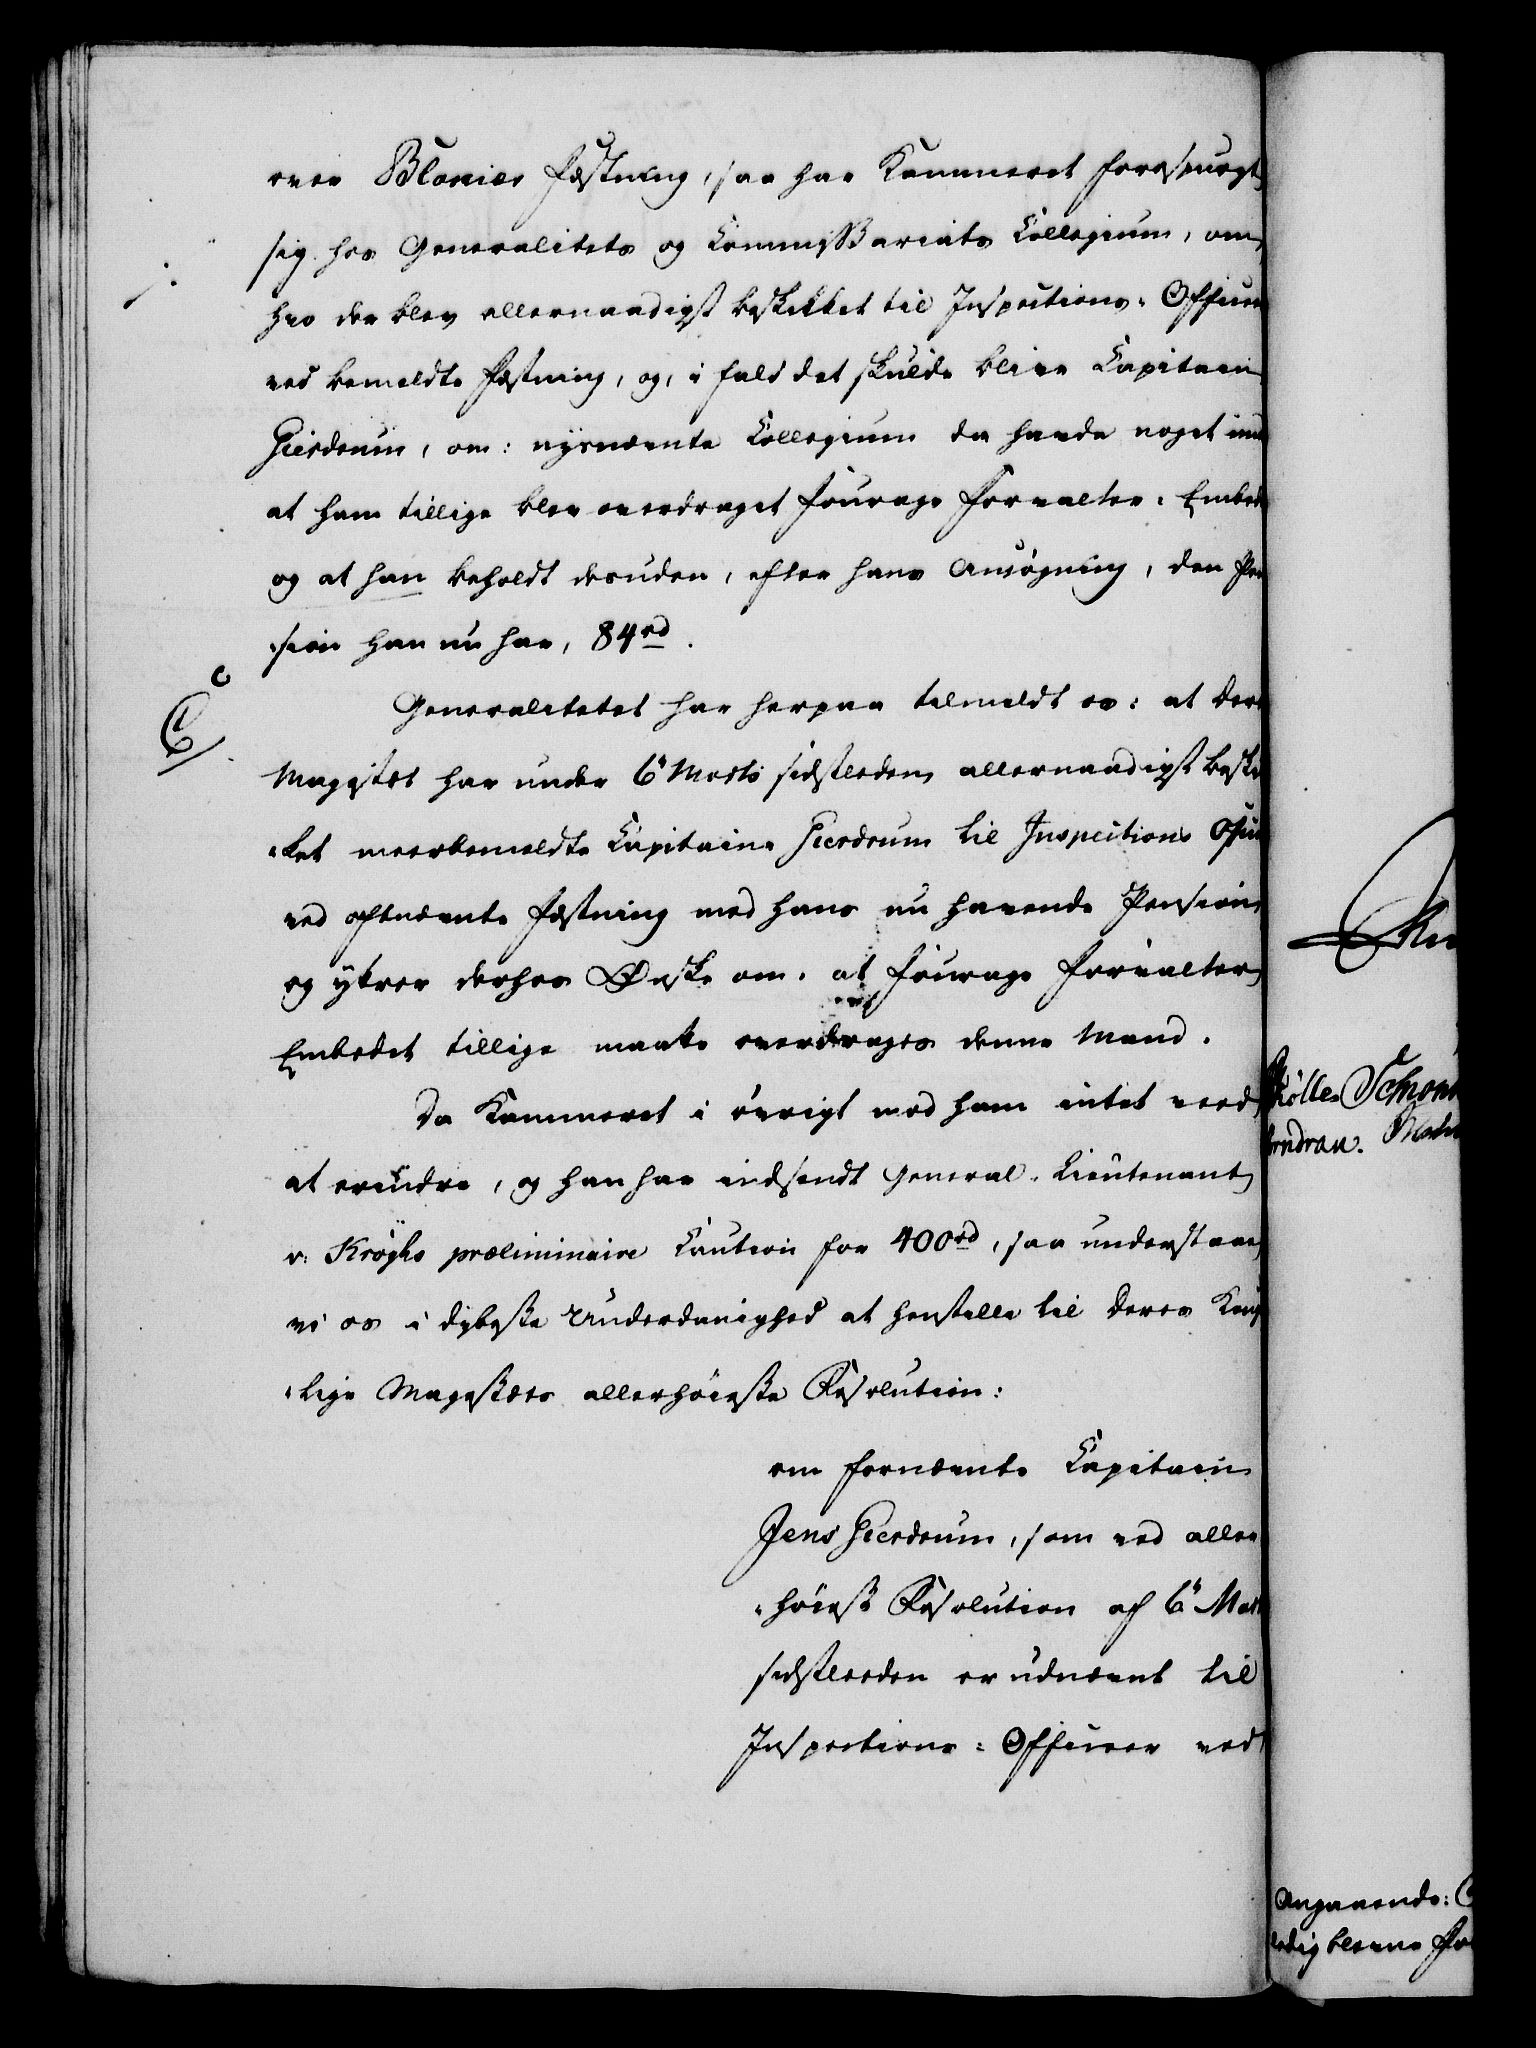 over Blakiers Fæstning, saa har Kammeret forespurgt
sig hos Generalitets og Commissariats Collegium, om
hvo der blev allernaadigst beskikket til Inspections-Officeer
ved bemeldte Fæstning, og, i fald det skulde blive Capitain
Gierdrum, om: nysnævnte Collegium da havde noget imod
at ham tillige blev overdraget Fourage Forvalter-Embedet
og at han beholdt desuden, efter hans Ansøgning, den Pen
sion han nu har, 84 rd.
C
Generalitetet har herpaa tilmeldt os: at Deres
Majestet har under 6te Martii sidstleden allernaadigst beskik
ket meerbemeldte Capitain Gierdrum til Inspections Officeer
ved oftnævnte Fæstning med hans nu havende Pension
og yttrer derhos Ønske om, at Fourage Forvalter
Embedet tillige maatte overdrages denne Mand.
Da Kammeret i øvrigt mod ham intet veed
at erindre, og han har indsendt General-Lieutenant
v: Krøghs præliminaire Caution for 400 rd, saa understaae
vi os i dybeste Underdanighed at henstille til Deres Konge
lige Majestæts allerhøieste Resolution:
om fornævnte Capitain
Jens Gierdrum, som ved aller
høiest Resolution af 6te Martii
sidstleeden er udnævnt til
Inspections-Officeer ved
Angaaende:
ledig blevne For